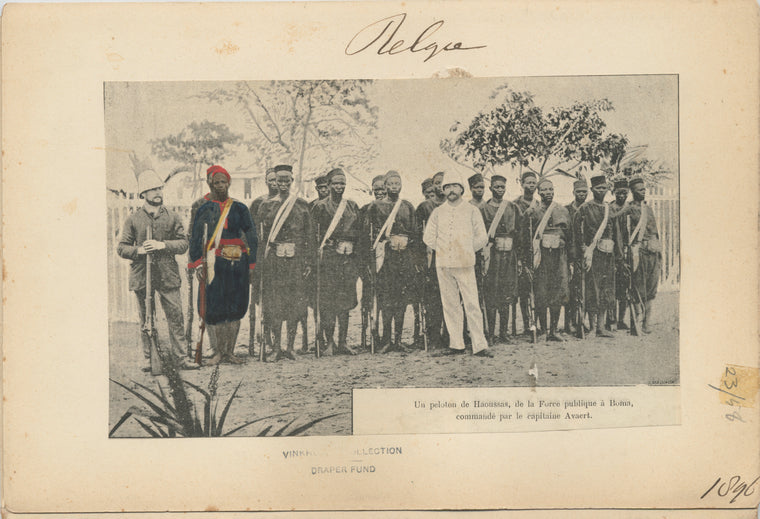 Belge
Un peloton de Haoussas, de la Force publique à Boma,
commandé par le capitaine Avaert.
COLLECTION
DRAPER FUND
1896